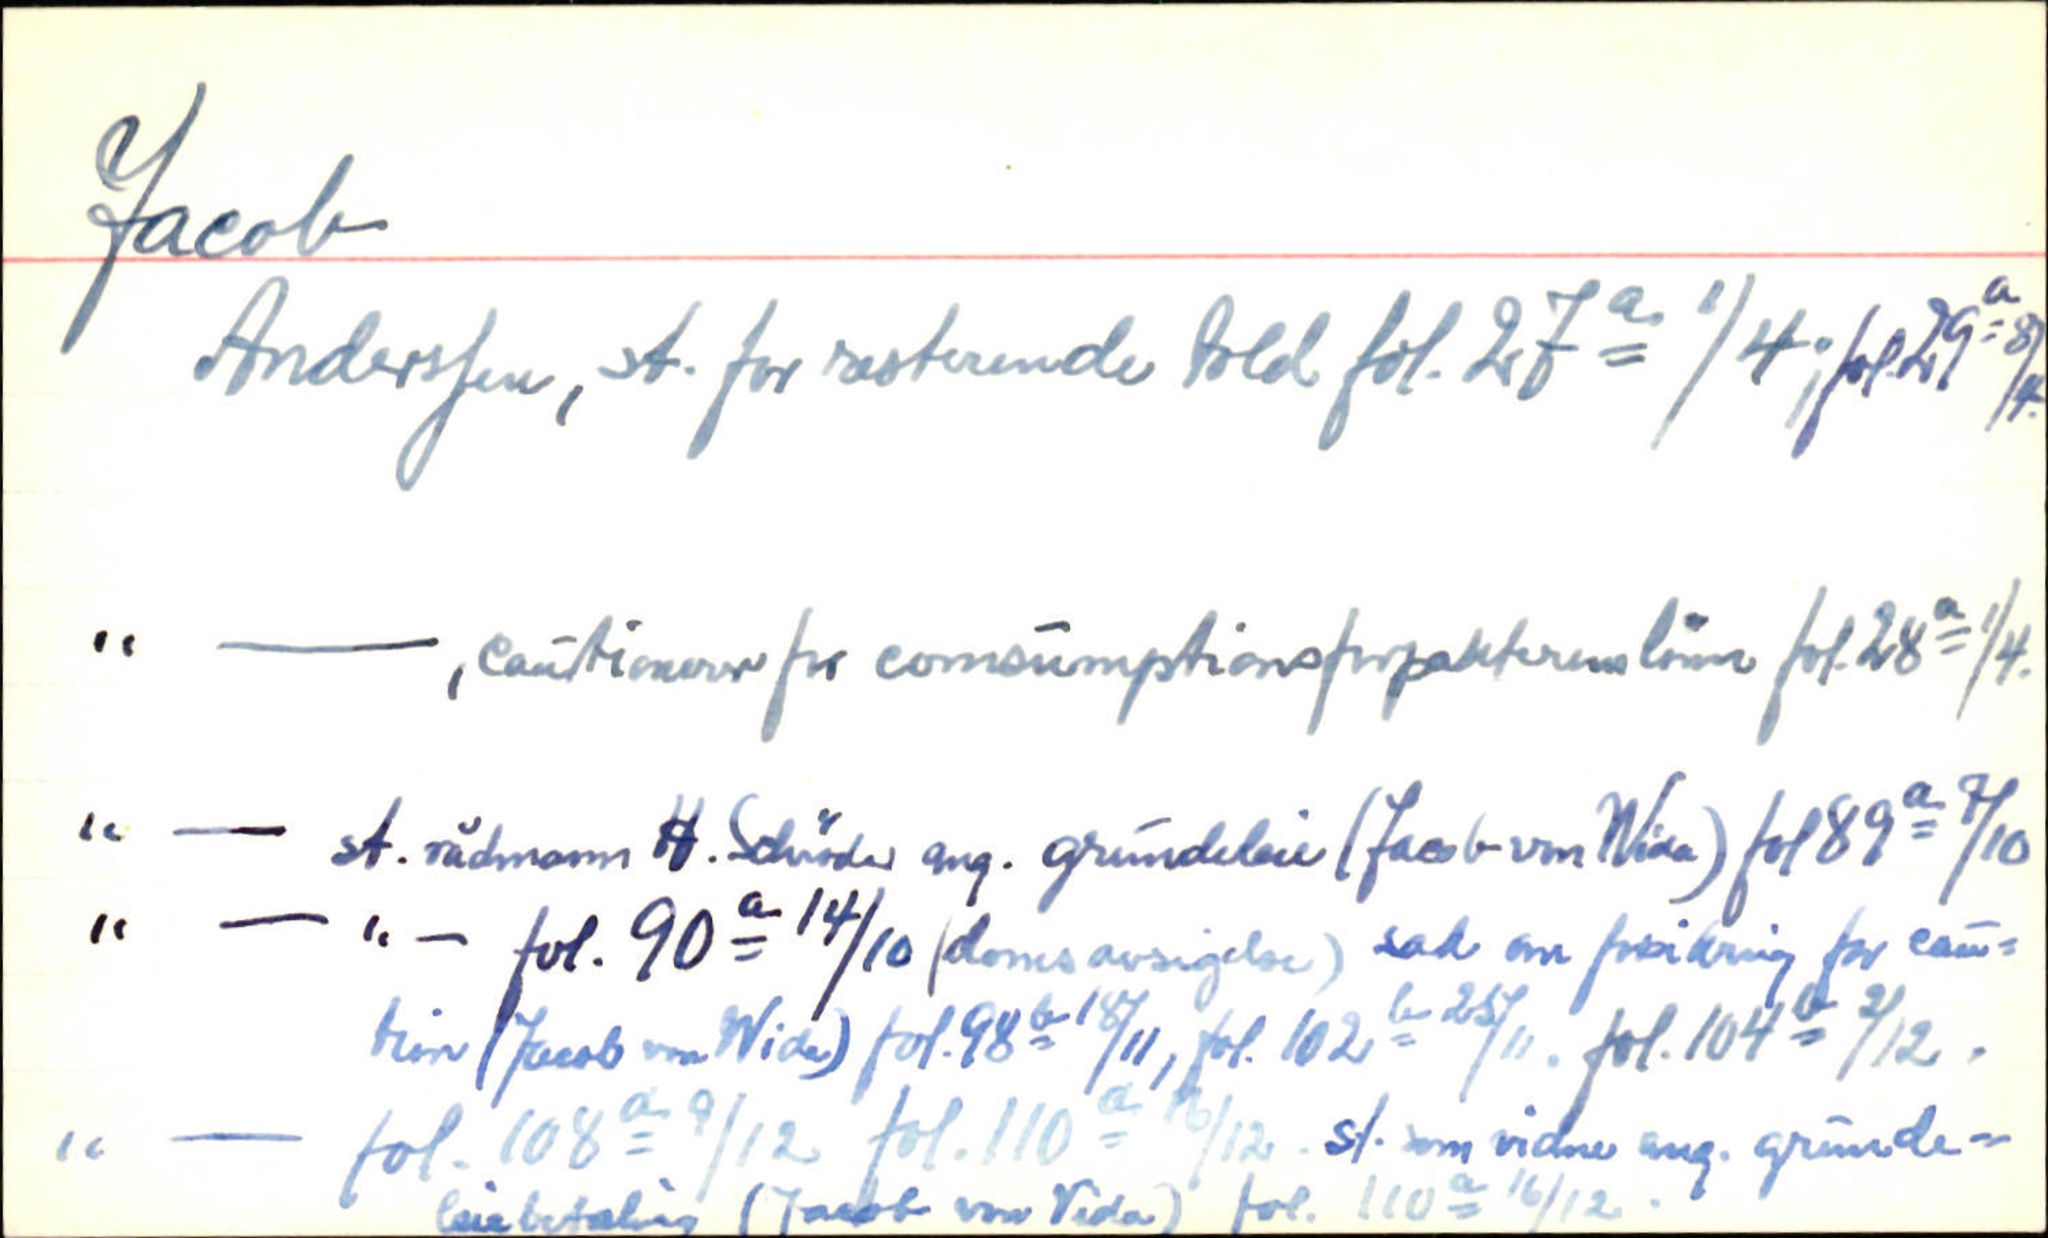 Jacob
Anderssen, st. for resterende told fol. 27a 1/4; fol. 29a 8/4.
" ——, cautionerer for consumptionsforpakterens lönn fol. 28a 1/4.
" — st. rådmann H. Schröder ang. grundeleie (Jacob von Wida) fol 89a 7/10
" — " — fol. 90a 14/10 (doms avsigelse) sak om forsikring for cau=
tion (Jacob von Wida) fol. 98b 18/11, fol. 102b 25/11. fol. 104b 2/12.
" — fol. 108a 9/12 fol. 110a 16/12. st. som vidne ang. grunde=
leiebetaling (Jacob von Vida) fol. 110a 16/12.